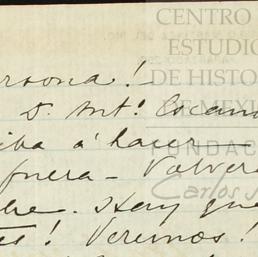 CENTRO
ESTUDIO
DE HISTO
DE MEXI
FUNDAC
Carlos S
ersona!
D. Mtº. Escan
iba á hacer —
fuera — Volver
Hay que
! Veremos!